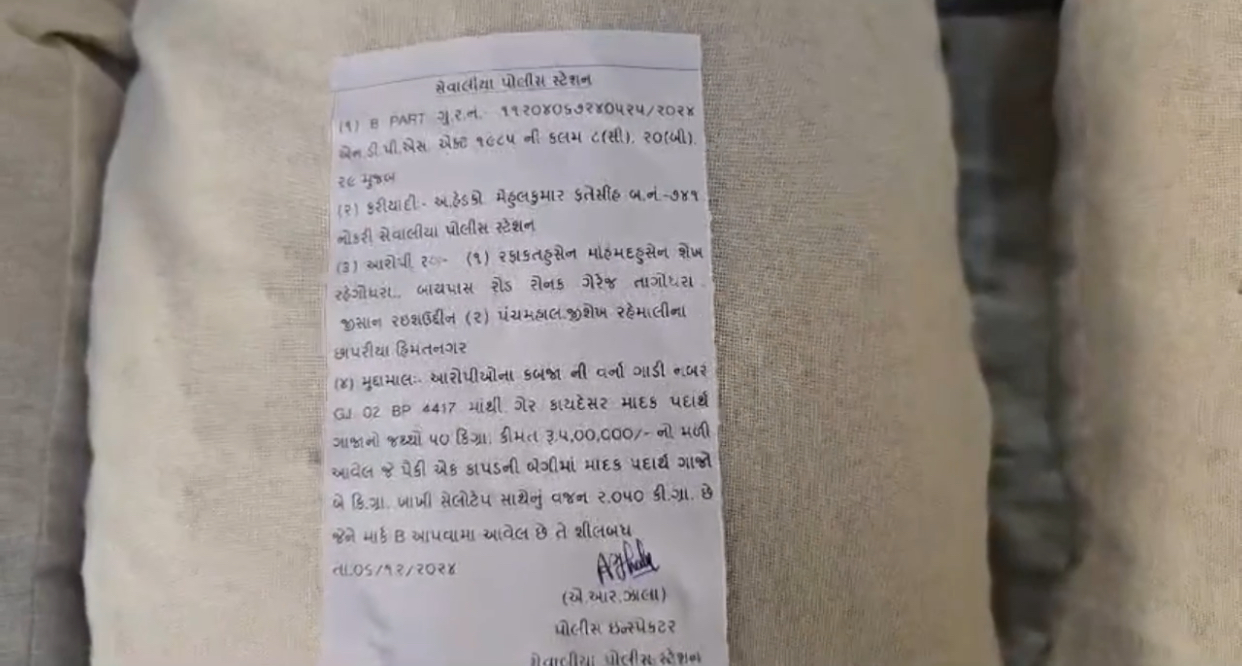 સેવાલીયા પોલીસ સ્ટેશન
(૧) B PART ગુ.ર.ન. ૧૧૨૦૪૦૬૭૨૪૦૫૨૫/૨૦૨૪
એન.ડી.પી.એસ. એક્ટ ૧૯૮૫ ની કલમ ૮(સી), ૨૦(બી),
૨૯ મુજબ
(૨) ફરીયાદી:- અ.હેડકો મેહુલકુમાર ફતેસીહ બ.નં.-૭૪૧
નોકરી સેવાલીયા પોલીસ સ્ટેશન
(૩) આરોપી (૧) રફાકતહુસેન મોહમદહુસેન શેખ
રહેગોધરા.. બાયપાસ રોડ રોનક ગેરેજ તાગોધરા
જીસાન (૨) પંચમહાલ.જીશેખ રહેમાલીના
છાપરીયા હિંમતનગર
(૪) મુદ્દામાલ:- આરોપીઓના કબજા ની વર્ના ગાડી નબર
GJ 02 BP 4417 માંથી ગેર કાયદેસર માદક પદાર્થ
ગાજાનો જથ્થો ૫૦ કિગ્રા. કીમત રૂ.૫,૦૦,૦૦૦/- નો મળી
આવેલ જે પૈકી એક કાપડની બેગીમાં માદક પદાર્થ ગાજો
બે કિ.ગ્રા. ખાખી સેલોટેપ સાથેનું વજન ૨.૦૫૦ કી.ગ્રા. છે
જેને માર્ક B આપવામા આવેલ છે તે શીલબધ
તા.૦૬/૧૨/૨૦૨૪
(એ.આર.ઝાલા)
પોલીસ ઇન્સ્પેકટર
સેવાલીયા પોલીસ સ્ટેશન